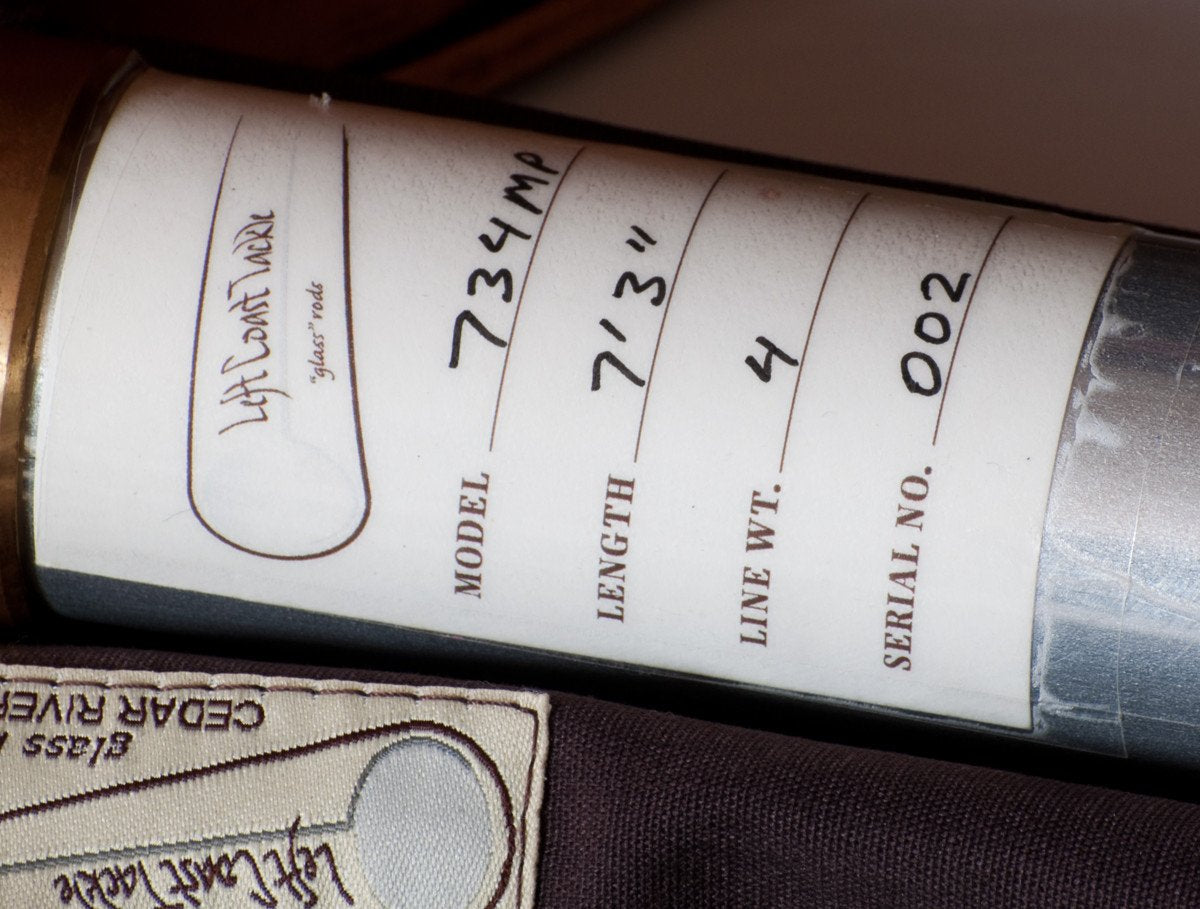 Left Coast Tackle
"glass" rods
MODEL 734MP
LENGTH 7'3"
LINE WT. 4
SERIAL NO. 002
CEDAR RIVER
glass
Left Coast Tackle